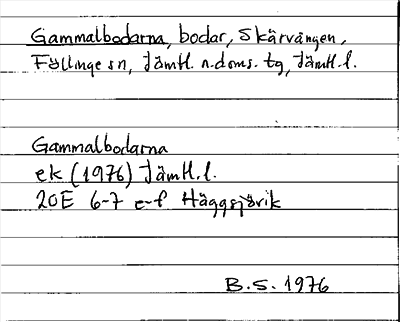 Gammalbodarna, bodar, Skärvången,
Föllinge sn, Jämtl. n. doms. tg, Jämtl. l.
Gammalbodarna
ek (1976) Jämtl. l.
20E 6-7 e-f Häggsjövik
B.S. 1976